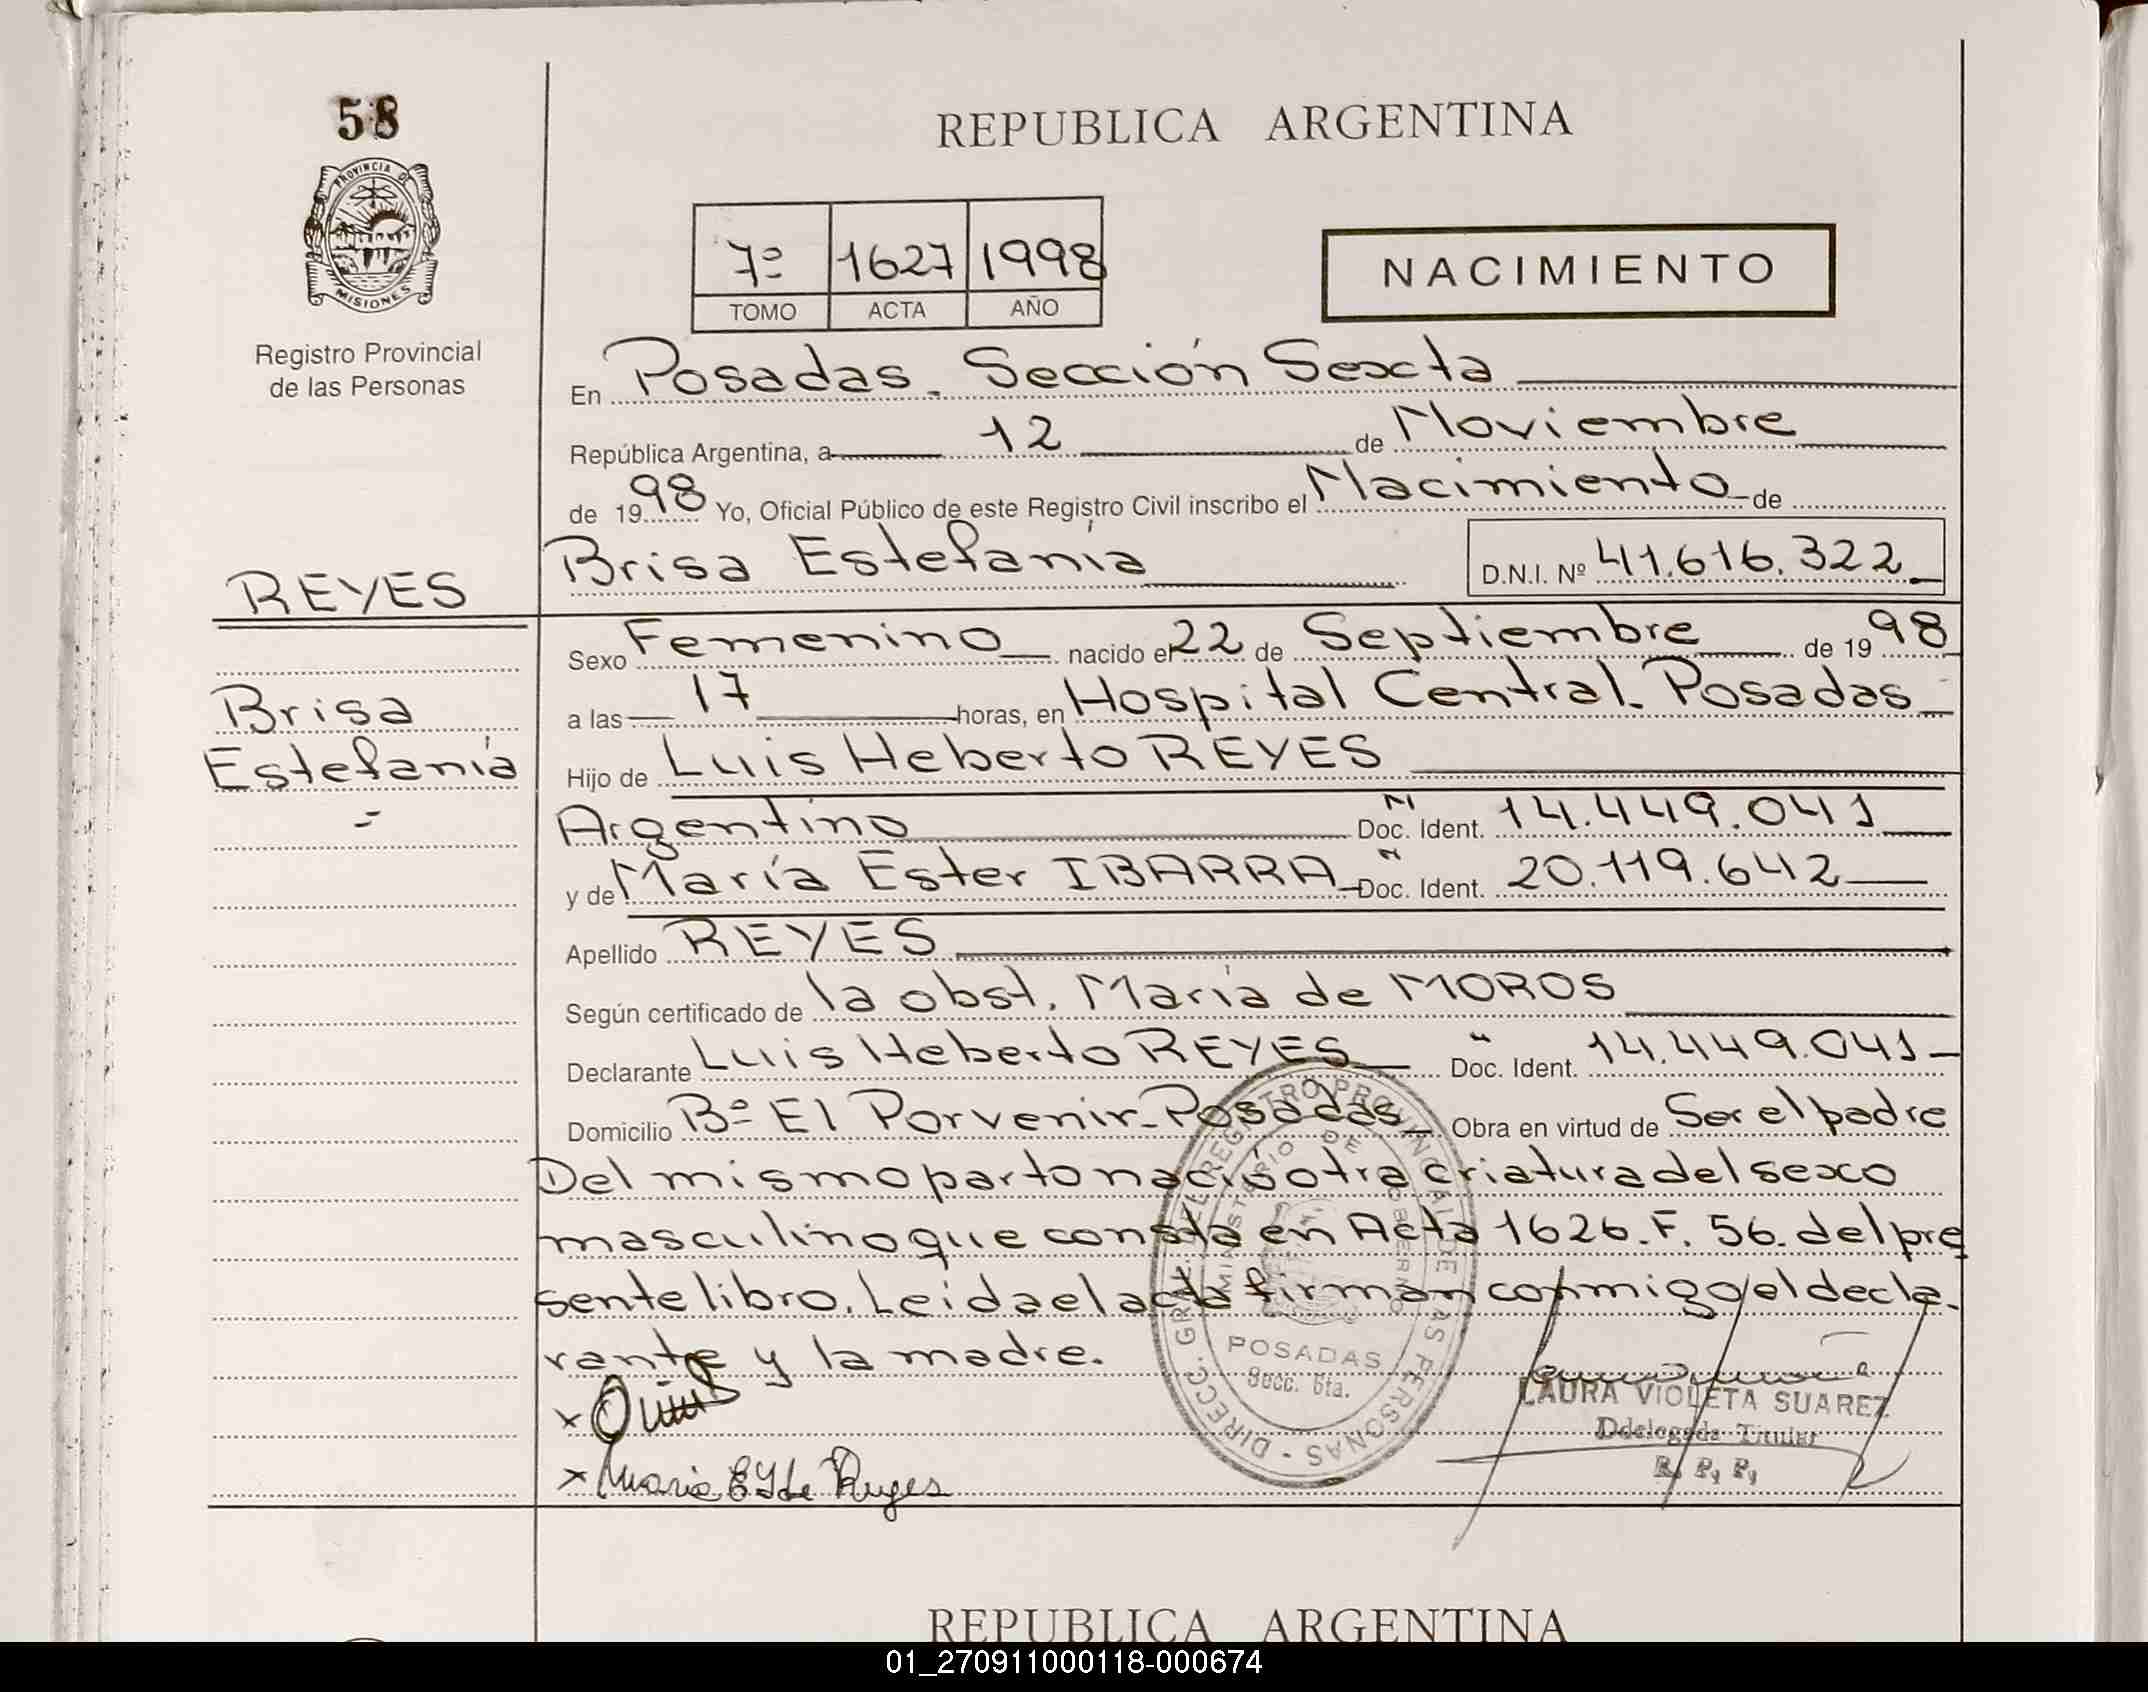 58
REPUBLICA ARGENTINA
PROVINCIA DE
MISIONES
Registro Provincial
de las Personas
7º 1627 1998
TOMO ACTA AÑO
NACIMIENTO
En Posadas. Sección Sexta
República Argentina, a 12 de Noviembre
de 1998 Yo, Oficial Público de este Registro Civil inscribo el Nacimiento de
REYES
Brisa Estefanía D.N.I. Nº 41.616.322
Sexo Femenino nacido el 22 de Septiembre de 1998
Brisa
a las 17 horas, en Hospital Central. Posadas
Estefanía
Hijo de Luis Heberto REYES
Argentino Doc. Ident. 14.449.041
y de María Ester IBARRA Doc. Ident. 20.119.642
Apellido REYES
Según certificado de la obst. María de MOROS
Declarante Luis Heberto REYES " Doc. Ident. 14.449.041
Domicilio Bº El Porvenir-Posadas Obra en virtud de Ser el padre
Del mismo parto nació otra criatura del sexo
masculino que consta en Acta 1626. F. 56. del pre
sente libro. Leida el acta firman conmigo el decla-
rante y la madre.
DIRECC. GRAL. DEL REGISTRO PROVINCIAL DE LAS PERSONAS
MINISTERIO DE GOBIERNO
POSADAS
Secc. 6ta.
LAURA VIOLETA SUAREZ
Ddelegada Titular
R. P. P.
x
x Maria E Y de Reyes
REPUBLICA ARGENTINA
01_270911000118-000674